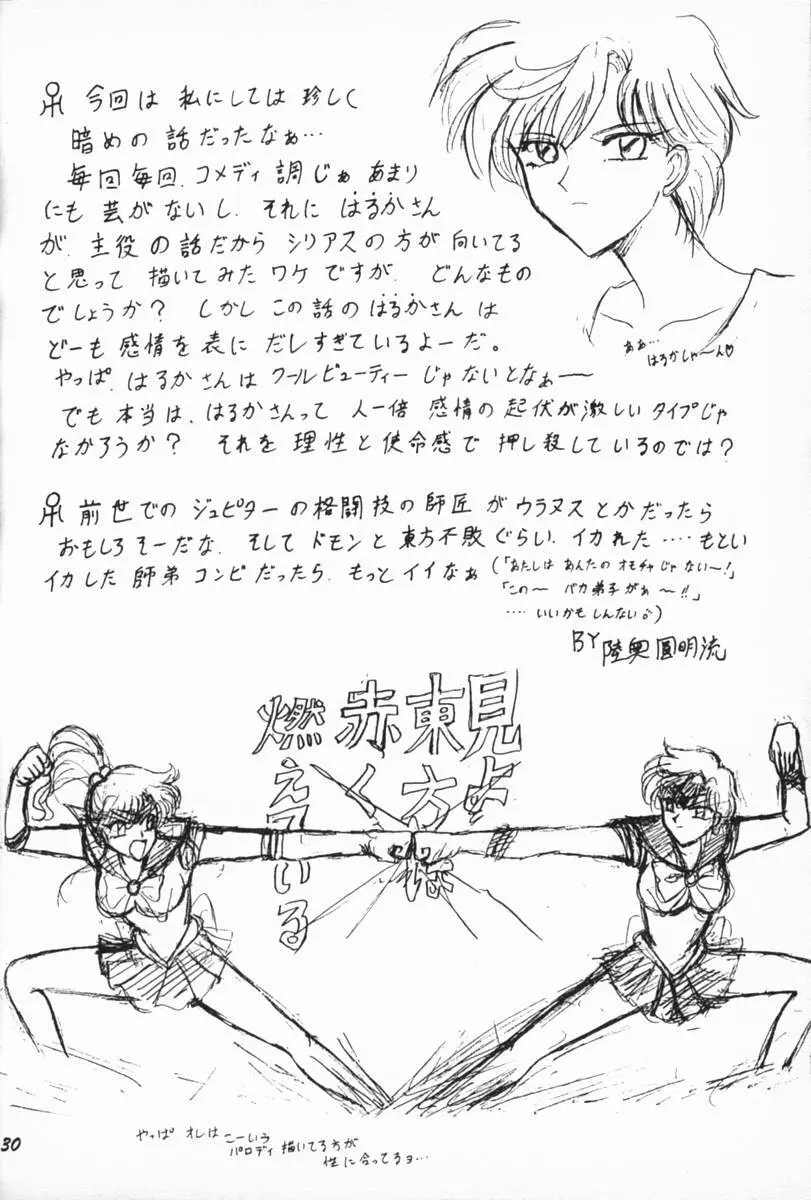 今回は 私にしては 珍しく
暗めの 話だったなぁ…
毎回毎回、コメディ調じゃぁ あまり
にも 芸がないし、それに はるかさん
が、主役の話だから シリアスの方が 向いてる
と思って 描いてみた ワケですが、どんなもの
でしょうか? しかし この話のはるかさんは
どーも 感情を表に だしすぎているよーだ。
やっぱ、はるかさんは クールビューティーじゃないとなぁ──
でも本当は、はるかさんって 人一倍 感情の起伏が激しいタイプじゃ
なかろうか? それを 理性と使命感で 押し殺しているのでは?
ああ…
はるかしゃ〜ん♡
前世での ジュピターの格闘技の師匠 が ウラヌスとかだったら
おもしろそーだな、そして ドモンと 東方不敗ぐらい、イカれた ‥‥もとい
イカした 師弟コンビだったら、もっとイイなぁ (「あたしは あんたの オモチャじゃ ない〜!」
「この〜 バカ弟子がぁ 〜!!」
‥‥いいかも しんない)
BY 陸奥圓明流
見よ
東方は
赤く
燃えている
やっぱ オレは こーいう
パロディ 描いてる方が
性に合ってるヨ…
30